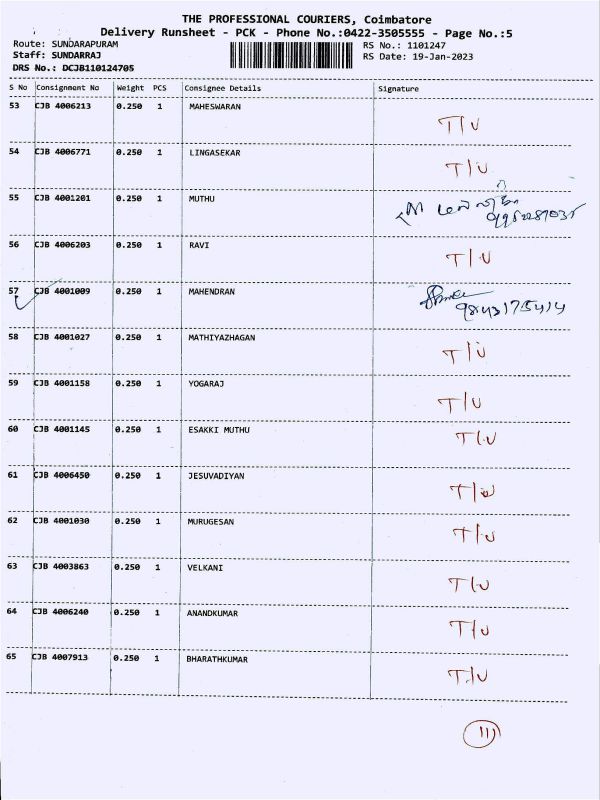 THE PROFESSIONAL COURIERS, Coimbatore
Delivery Runsheet - PCK - Phone No.:0422-3505555 - Page No.:5
Route: SUNDARAPURAM RS No.: 1101247
Staff: SUNDARRAJ RS Date: 19-Jan-2023
DRS No.: DCJB110124705
S No Consignment No Weight PCS Consignee Details Signature
53 CJB 4006213 0.250 1 MAHESWARAN T/U
54 CJB 4006771 0.250 1 LINGASEKAR T/U
55 CJB 4001201 0.250 1 MUTHU
56 CJB 4006203 0.250 1 RAVI T/U
57 CJB 4001009 0.250 1 MAHENDRAN
9843175414
58 CJB 4001027 0.250 1 MATHIYAZHAGAN T/U
59 CJB 4001158 0.250 1 YOGARAJ T/U
60 CJB 4001145 0.250 1 ESAKKI MUTHU T/U
61 CJB 4006450 0.250 1 JESUVADIYAN T/U
62 CJB 4001030 0.250 1 MURUGESAN T/U
63 CJB 4003863 0.250 1 VELKANI T/U
64 CJB 4006240 0.250 1 ANANDKUMAR T/U
65 CJB 4007913 0.250 1 BHARATHKUMAR T/U